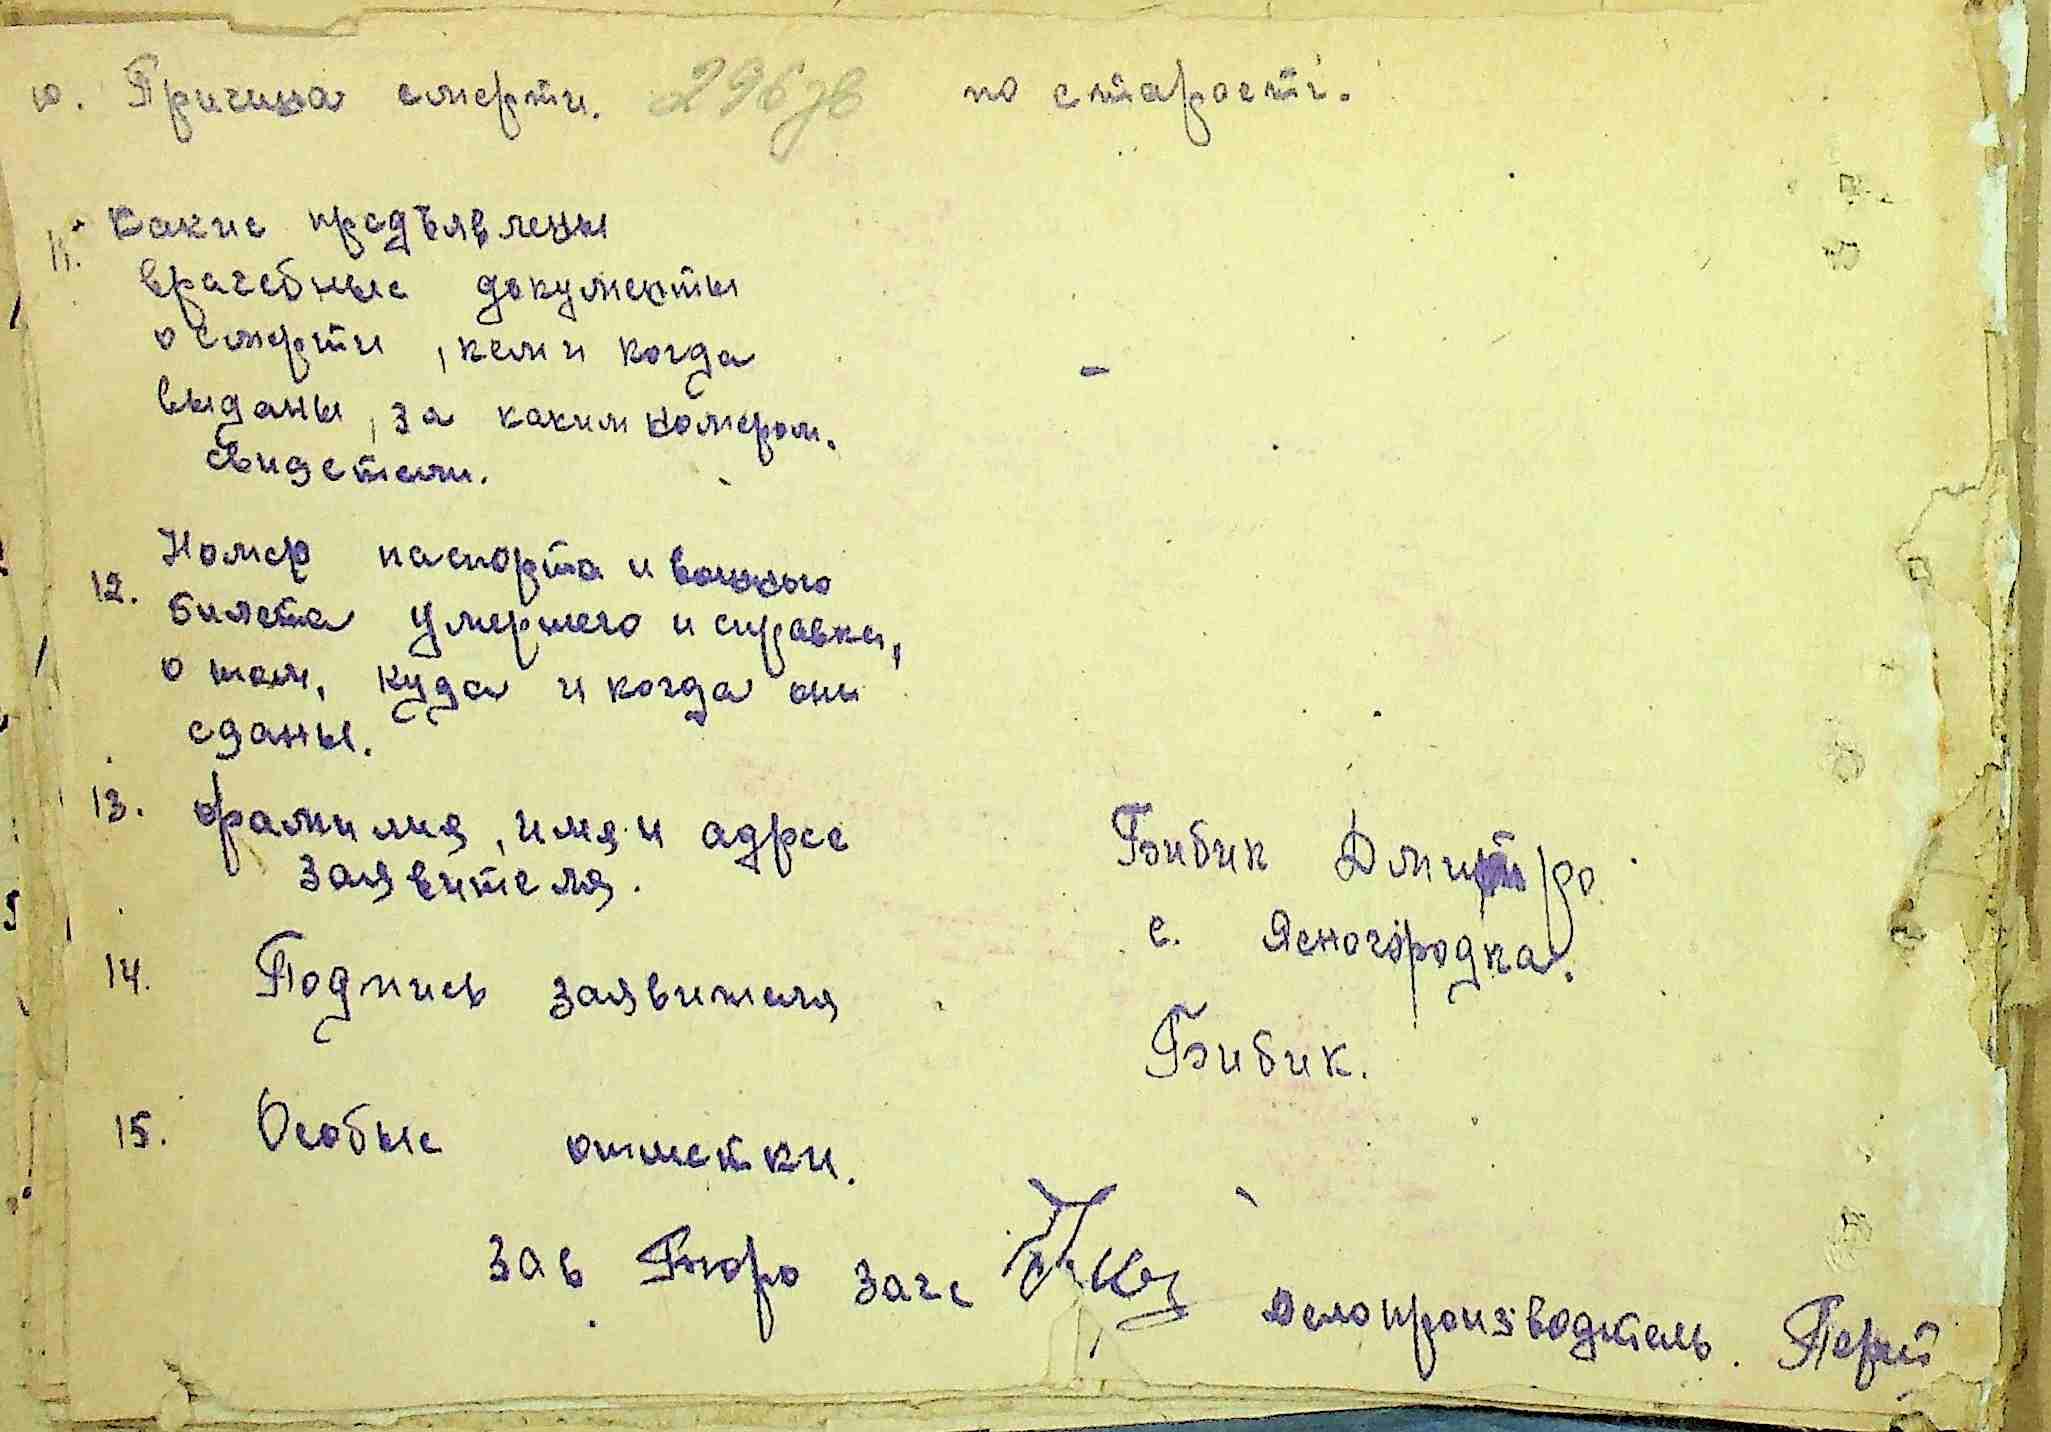 10. Причина смерти. 296зв по старості.
11. Какие предъявлены
врачебные документы
о смерти, кем и когда
выданы, за каким номером.
свидетели.
Номер паспорта и воинного
12. билета умершего и справка,
о том, куда и когда они
сданы.
13. фамилия, имя и адрес
заявителя.
Бибик Дмитро.
с. Ясногородка.
14. Подпись заявителя
Бибик.
15. Особые отметки.
зав Бюро загс
Делопроизводитель.